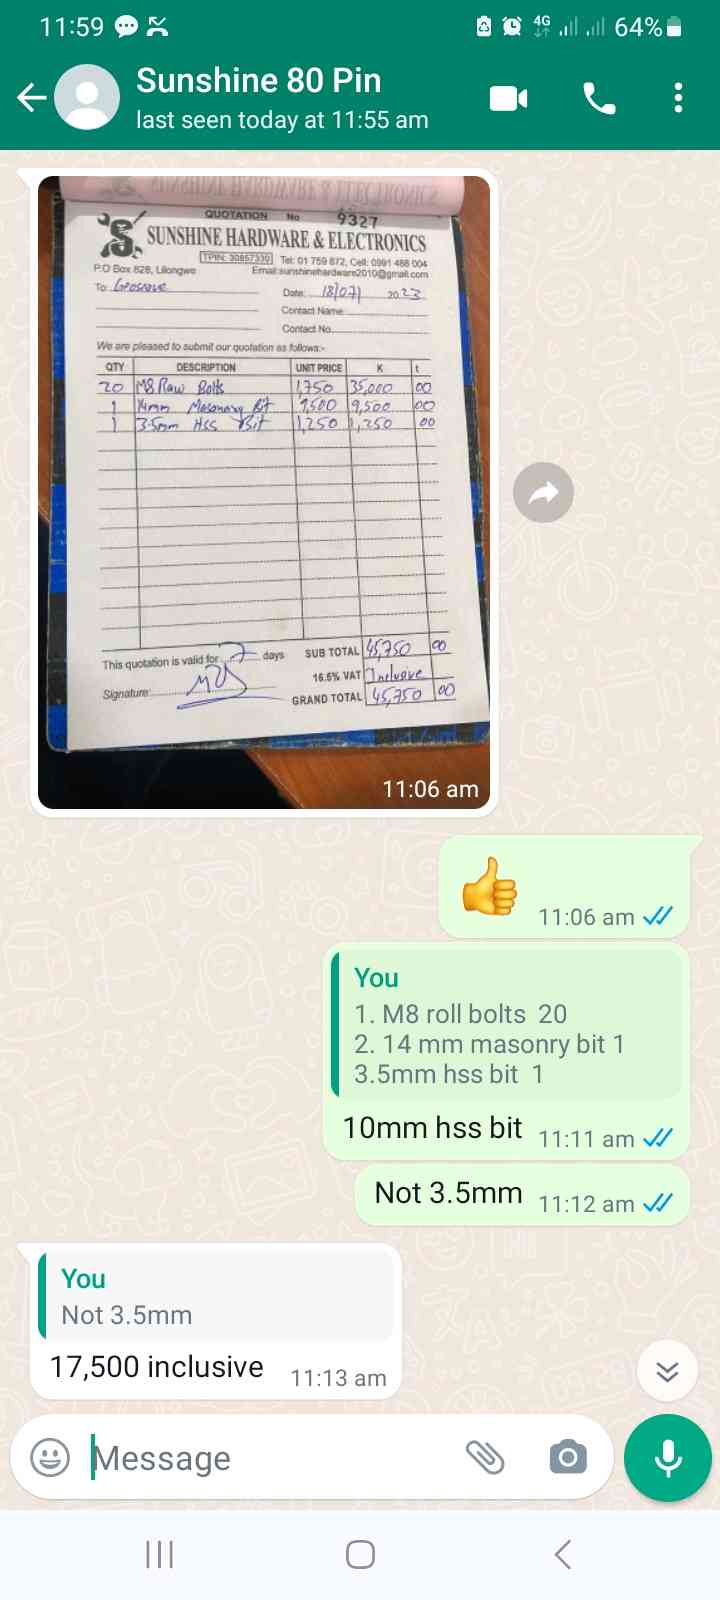 11:59
4G
64%
Sunshine 80 Pin
last seen today at 11:55 am
SUNSHINE HARDWARE & ELECTRONICS
QUOTATION No 9327
SUNSHINE HARDWARE & ELECTRONICS
TPIN: 30857339 Tel: 01 759 872, Cell: 0991 486 004
P.O Box 828, Lilongwe Email:sunshinehardware2010@gmail.com
To:
Date: 18/07/ 2023
Contact Name
Contact No.
We are pleased to submit our quotation as follows:-
QTY DESCRIPTION UNIT PRICE K t
20 M8 Raw Bolts 1,750 35,000 00
1 14mm Masonary Bit 9,500 9,500 00
1 3.5mm HSS Bit 1,250 1,250 00
This quotation is valid for 7 days SUB TOTAL 45,750 00
16.5% VAT Inclusive
Signature: GRAND TOTAL 45,750 00
11:06 am
11:06 am
You
1. M8 roll bolts 20
2. 14 mm masonry bit 1
3.5mm hss bit 1
10mm hss bit 11:11 am
Not 3.5mm 11:12 am
You
Not 3.5mm
17,500 inclusive 11:13 am
Message